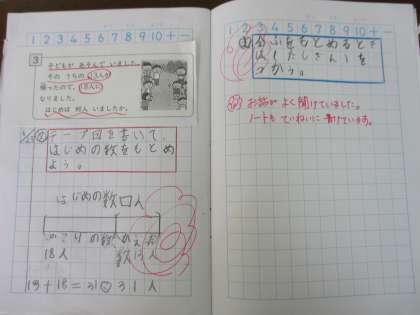 1 2 3 4 5 6 7 8 9 10 + −
3
子どもが あそんで いました。
その うちの 13人が
帰ったので、18人に
なりました。
はじめは 何人 いましたか。
テープ図を書いて、
はじめの数をもとめ
よう。
はじめの数□人
のこりの数
18人
数13人
13+18=31 31人
1 2 3 4 5 6 7 8 9 10 + −
ぜんぶをもとめるとき
は(たしざん)を
つかう。
お話が よく聞けていました。
ノートも ていねいに 書けています。